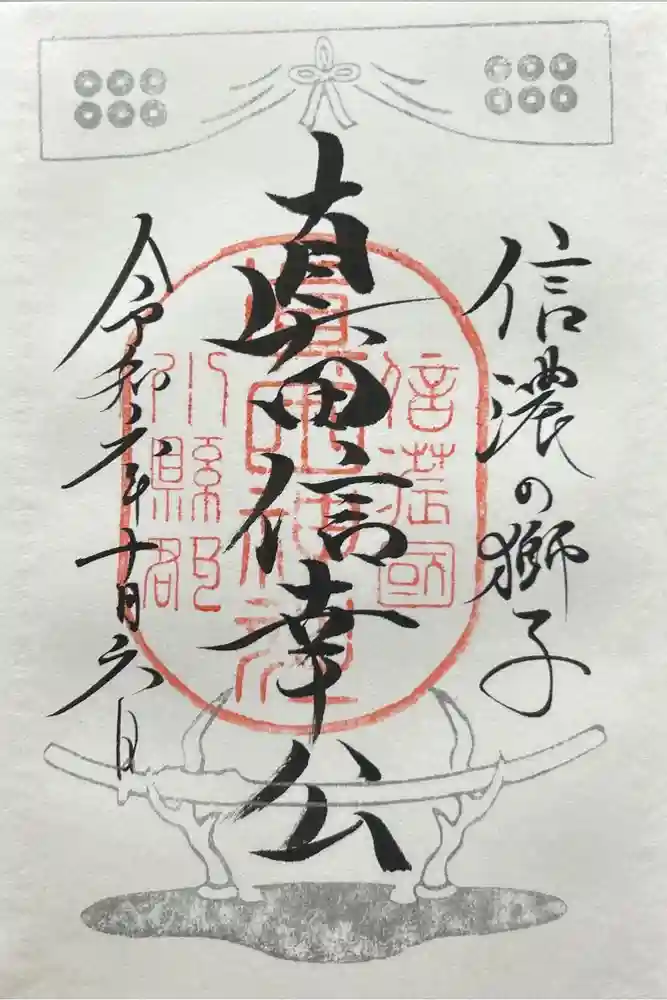 信濃の獅子
真田信幸公
令和六年十月六日
信濃國
眞田神社